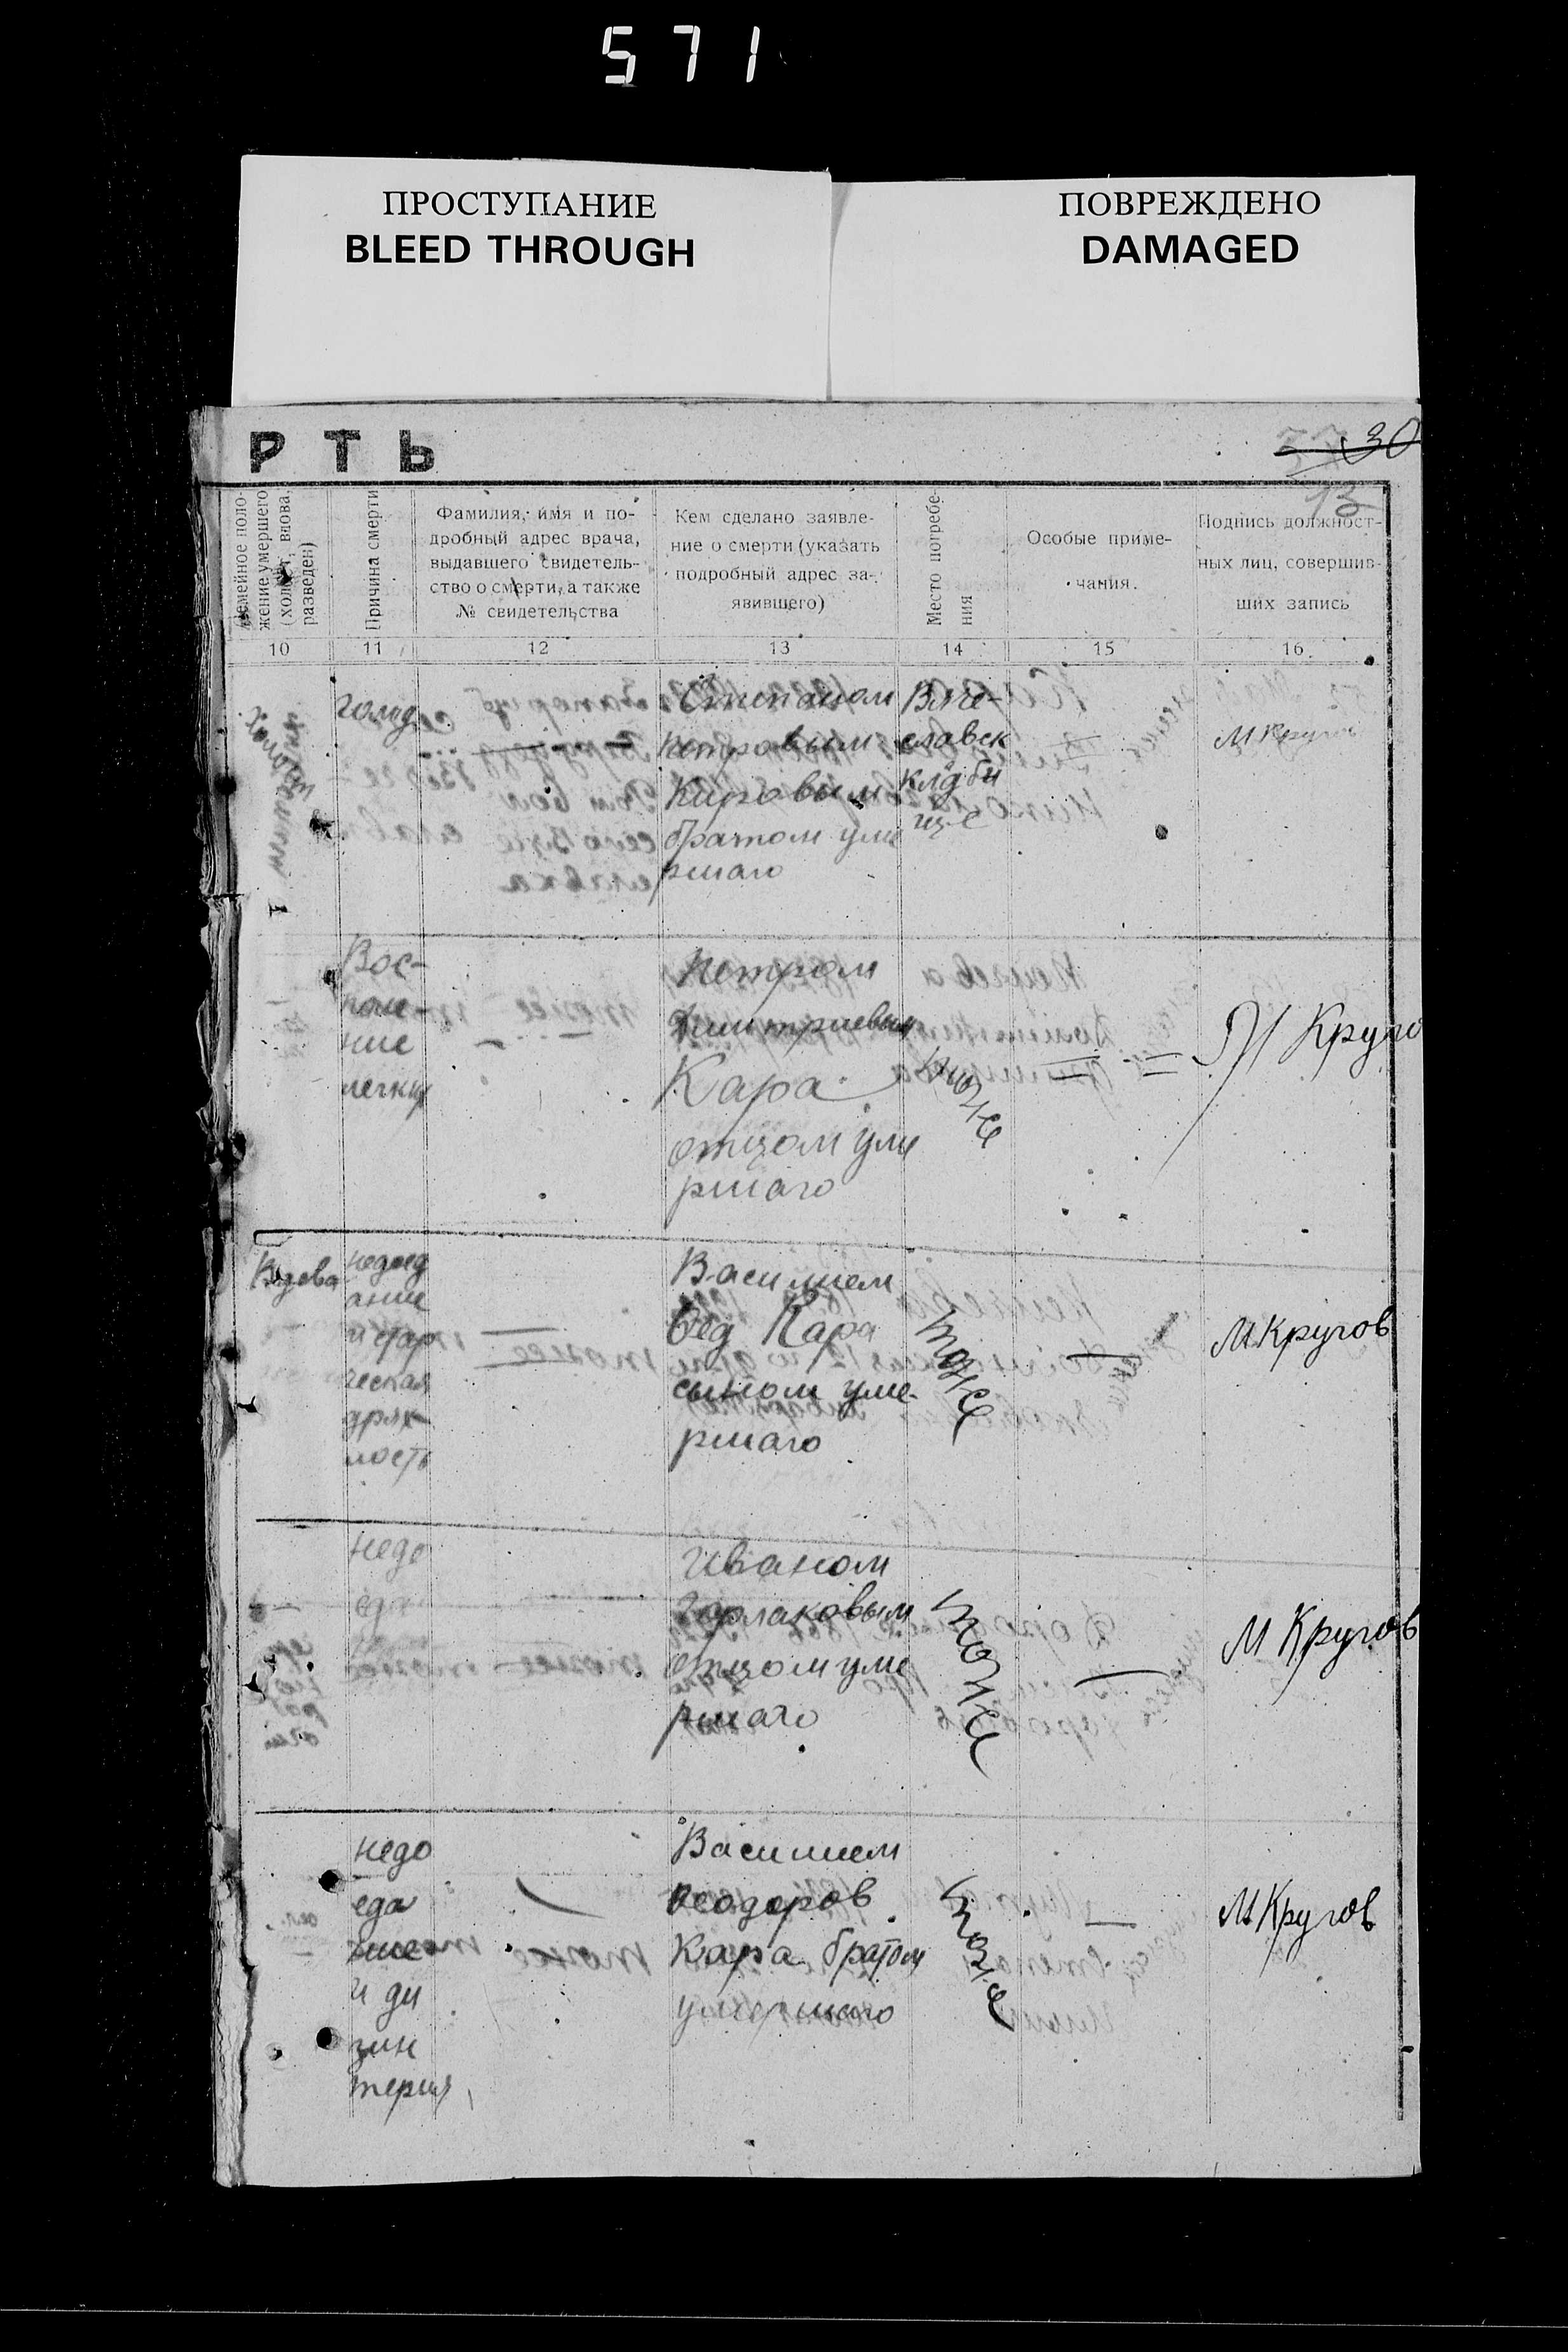 571
ПРОСТУПАНИЕ
BLEED THROUGH
ПОВРЕЖДЕНО
DAMAGED
РТЬ
30
13
Семейное поло-
жение умершего
(холост, вдова,
разведен)
Причина смерти
Фамилия, имя и по-
дробный адрес врача,
выдавшего свидетель-
ство о смерти, а также
№ свидетельства
Кем сделано заявле-
ние о смерти (указать
подробный адрес за-
явившего)
Место погребе-
ния
Особые приме-
чания.
Подпись должност-
ных лиц, совершив-
ших запись
10 11 12 13 14 15 16
холост
голод
Степаном
Петровым
Кировым
братом уме
ршаго
Вяче-
славск
кладби
ще
М Кругов
Вос-
пале-
ние
легких
Петром
Дмитриевым
Кара
отцом уме
ршаго
тоже
М Круго
Вдова
недоед
ание
и стар
ческая
дрях-
лость
Василием
Фед Кара
сыном уме-
ршаго
тоже
М Кругов
недо
еда
Иваном
отцом уме
ршаго
тоже
М Кругов
недо
еда
ние
и ди
зин
терия
Василием
Феодоров
Кара братом
умершаго
тоже
М Кругов